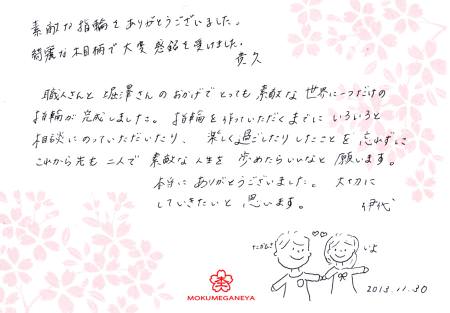 素敵な指輪をありがとうございました。
綺麗な木目柄で大変感銘を受けました。
貴久
職人さんと堀澤さんのおかげでとっても素敵な世界に一つだけの
指輪が完成しました。指輪を作っていただくまでにいろいろと
相談にのっていただいたり、楽しく過ごしたりしたことを忘れずに
これから先も二人で素敵な人生を歩めたらいいなと願います。
本当にありがとうございました。大切に
していきたいと思います。
伊代
たかひさ
いよ
MOKUMEGANEYA
2013.11.30